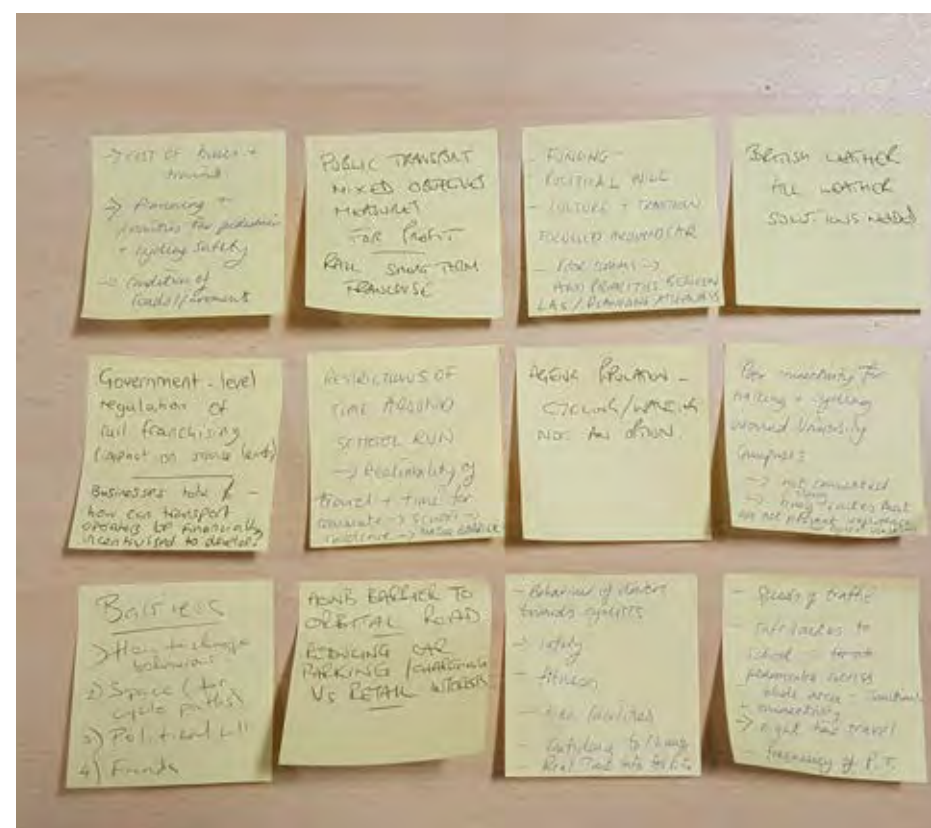 → COST OF buses +
trains
→ financing +
priorities for pedestrian
+ cycling safety
→ condition of
roads/pavements
PUBLIC TRANSPORT
MIXED OBJECTIVES
MEASURES
FOR PROFIT
RAIL SHORT TERM
FRANCHISE
- FUNDING -
- POLITICAL WILL
- CULTURE + TRADITION
FOCUSSED AROUND CAR
AND PRIORITIES BETWEEN
LAS / PLANNING / HIGHWAYS
BRITISH WEATHER
ALL WEATHER
SOLUTIONS NEEDED
Government-level
regulation of
rail franchising
(impact on service levels)
Businesses take £ -
how can transport
operators be financially
incentivised to develop?
RESTRICTIONS OF
TIME AROUND
SCHOOL RUN
→ Practicality of
travel + time for
commute → school →
AGEING POPULATION -
CYCLING/WALKING
NOT AN OPTION.
Poor connectivity for
walking + cycling
around University
Campuses
→ not connected
→ routes that
are not
Barriers
1) How to change
behaviour
2) Space (for
cycle paths)
3) Political will
4) Funds
AONB BARRIER TO
ORBITAL ROAD
REDUCING CAR
PARKING / CHARGING
VS RETAIL INTERESTS
- Behaviour of drivers
towards cyclists
→ safety
- fitness
- facilities
- Real Time info
- Speeds of traffic
school
permeates across
whole area
+ connectivity
→ night time travel
- frequency of P.T.